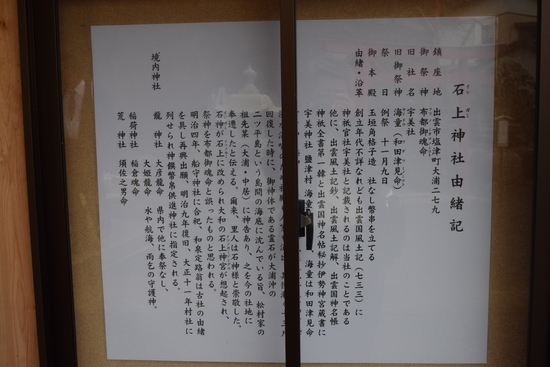 石上神社由緒記
鎮座地 出雲市塩津町大浦二七九
御祭神 布都御魂命
旧社名 宇美社
旧御祭神 海童(和田津見命)
祭日 例祭 十一月九日
御本殿 玉垣角格子造 社なし幣串を立てる
由緒・沿革 創立年代不詳なれども出雲国風土記(七三三)に
神祇官社宇美社と記載されるのは当社のことである
他に、出雲風土記鈔、出雲風土記解、出雲国神名帳
神祇全書第一輯と出雲国神名帖秘抄伊勢神宮蔵書に
宇美神社 鹽津村 海童 海童は和田津見命
回復した時に、御神体である霊石が大浦沖の
二ツ平島という島間の海底に沈んでいる旨、松村家の
祖先某(大浦・中居)に神告あり、之を今の社地に
奉遷したと伝える。爾来、里人は石神様と崇敬した。
石神が石上に改められ大和の石上神宮が想起され、
祭神を布都御魂命と誤ったものと思われる。
明治四年、船守神社に合祀、和泉定路翁は古社の由緒
を具し再興出願、明治九年復旧、大正十一年村社に
列せられ神饌幣帛供進神社に指定される。
境内神社 龍神社 大彦龍命 県内で他に奉祭なし。
大姫龍命 水や航海、雨乞の守護神。
稲荷神社 稲倉魂命
荒神社 須佐之男命